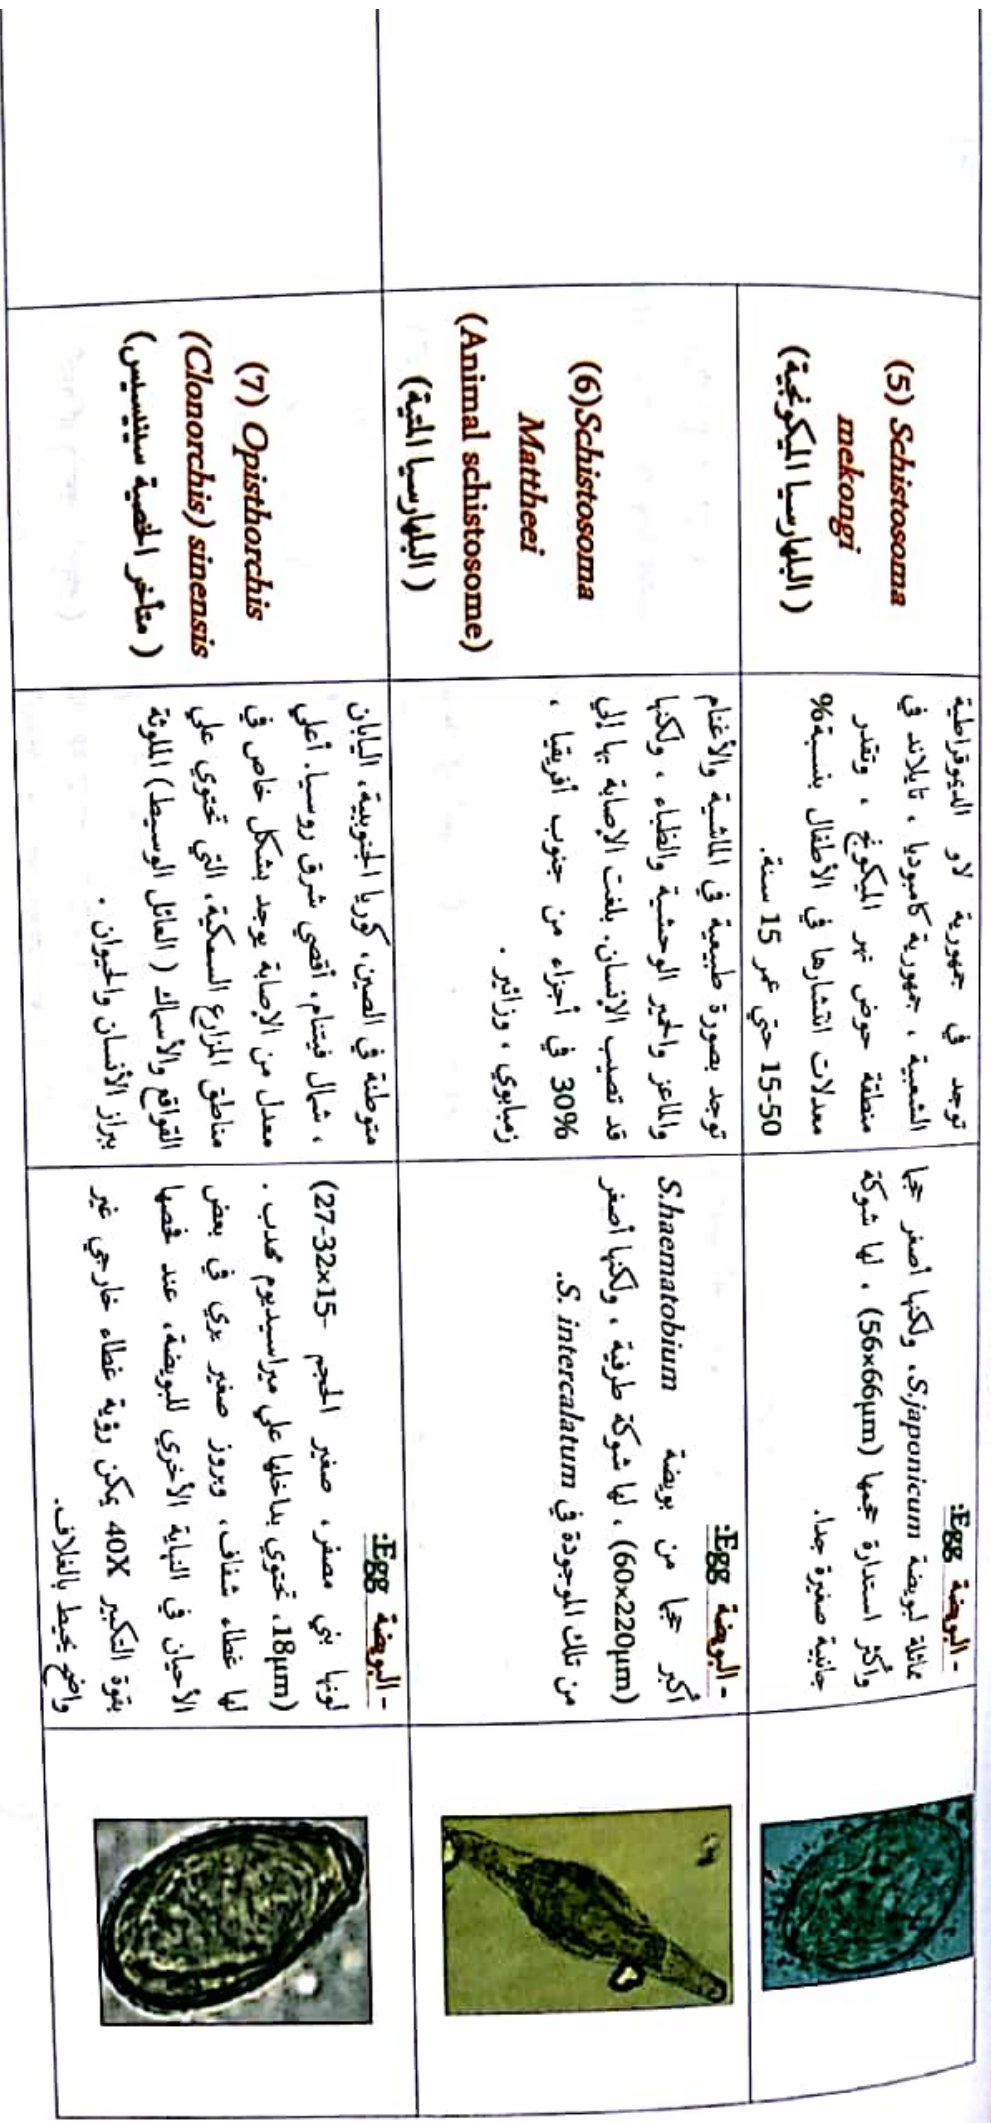 (5) Schistosoma
mekongi
(البلهارسيا الميكونجية)
توجد في جمهورية لاو الديموقراطية
الشعبية ، جمهورية كامبوديا ، تايلاند في
منطقة حوض نهر الميكونج ، وتقدر
معدلات انتشارها في الأطفال بنسبة%
15-50 حتي عمر 15 سنة.
- البويضة Egg:
مماثلة لبويضة S.japonicum، ولكنها أصغر حجما
وأكثر استدارة حجمها (56x66µm) ، لها شوكة
جانبية صغيرة جدا.
(6)Schistosoma
Mattheei
(Animal schistosome)
(البلهارسيا المتية)
توجد بصورة طبيعية في الماشية والأغنام
والماعز والحمير الوحشية والظباء ، ولكنها
قد تصيب الإنسان. بلغت الإصابة بها إلي
30% في أجزاء من جنوب أفريقيا ،
زمبابوي ، وزائير .
- البويضة Egg:
أكبر حجما من بويضة S.haematobium
(60x220µm) ، لها شوكة طرفية ، ولكنها أصغر
من تلك الموجودة في S. intercalatum.
(7) Opisthorchis
(Clonorchis) sinensis)
( متأخر الخصية سينيسيس)
متوطنة في الصين، كوريا الجنوبية، اليابان
، شمال فيتنام، أقصي شرق روسيا. أعلي
معدل من الإصابة يوجد بشكل خاص في
مناطق المزارع السمكية، التي تحتوي علي
القواقع والأسماك ( العائل الوسيط) الملوثة
ببراز الأنسان والحيوان .
- البويضة Egg:
لونها بني مصفر، صغير الحجم (27-32x15-
18µm)، تحتوي بداخلها علي ميراسيديوم محدب .
لها غطاء شفاف، وبروز صغير يري في بعض
الأحيان في النهاية الأخري للبويضة، عند فحصها
بقوة التكبير 40X يمكن رؤية غطاء خارجي غير
واضح يحيط بالغلاف.